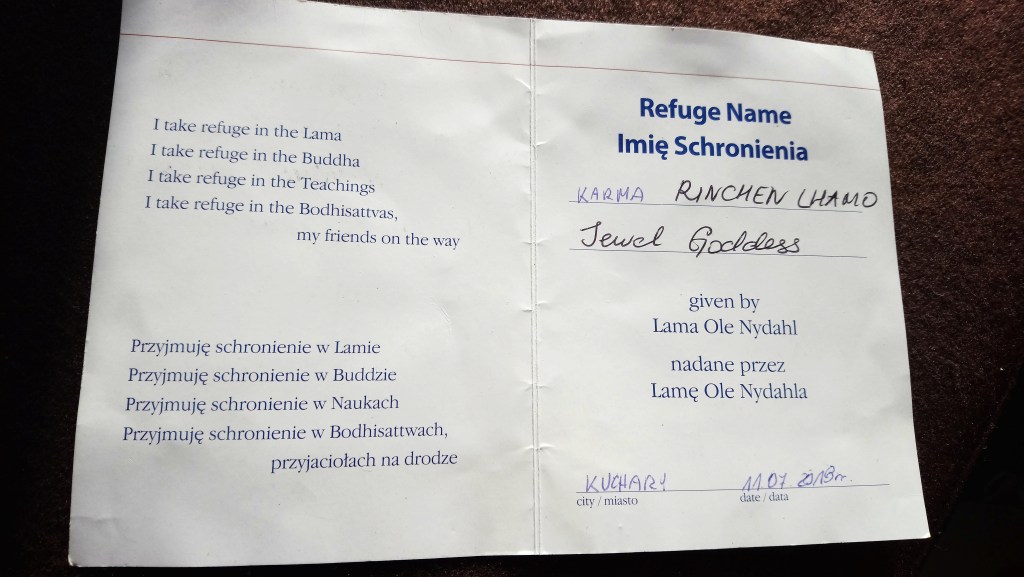 I take refuge in the Lama
I take refuge in the Buddha
I take refuge in the Teachings
I take refuge in the Bodhisattvas,
my friends on the way
Przyjmuję schronienie w Lamie
Przyjmuję schronienie w Buddzie
Przyjmuję schronienie w Naukach
Przyjmuję schronienie w Bodhisattwach,
przyjaciołach na drodze
Refuge Name
Imię Schronienia
KARMA RINCHEN LHAMO
Jewel Goddess
given by
Lama Ole Nydahl
nadane przez
Lamę Ole Nydahla
KUCHARY 11.07.2019r.
city / miasto date / data